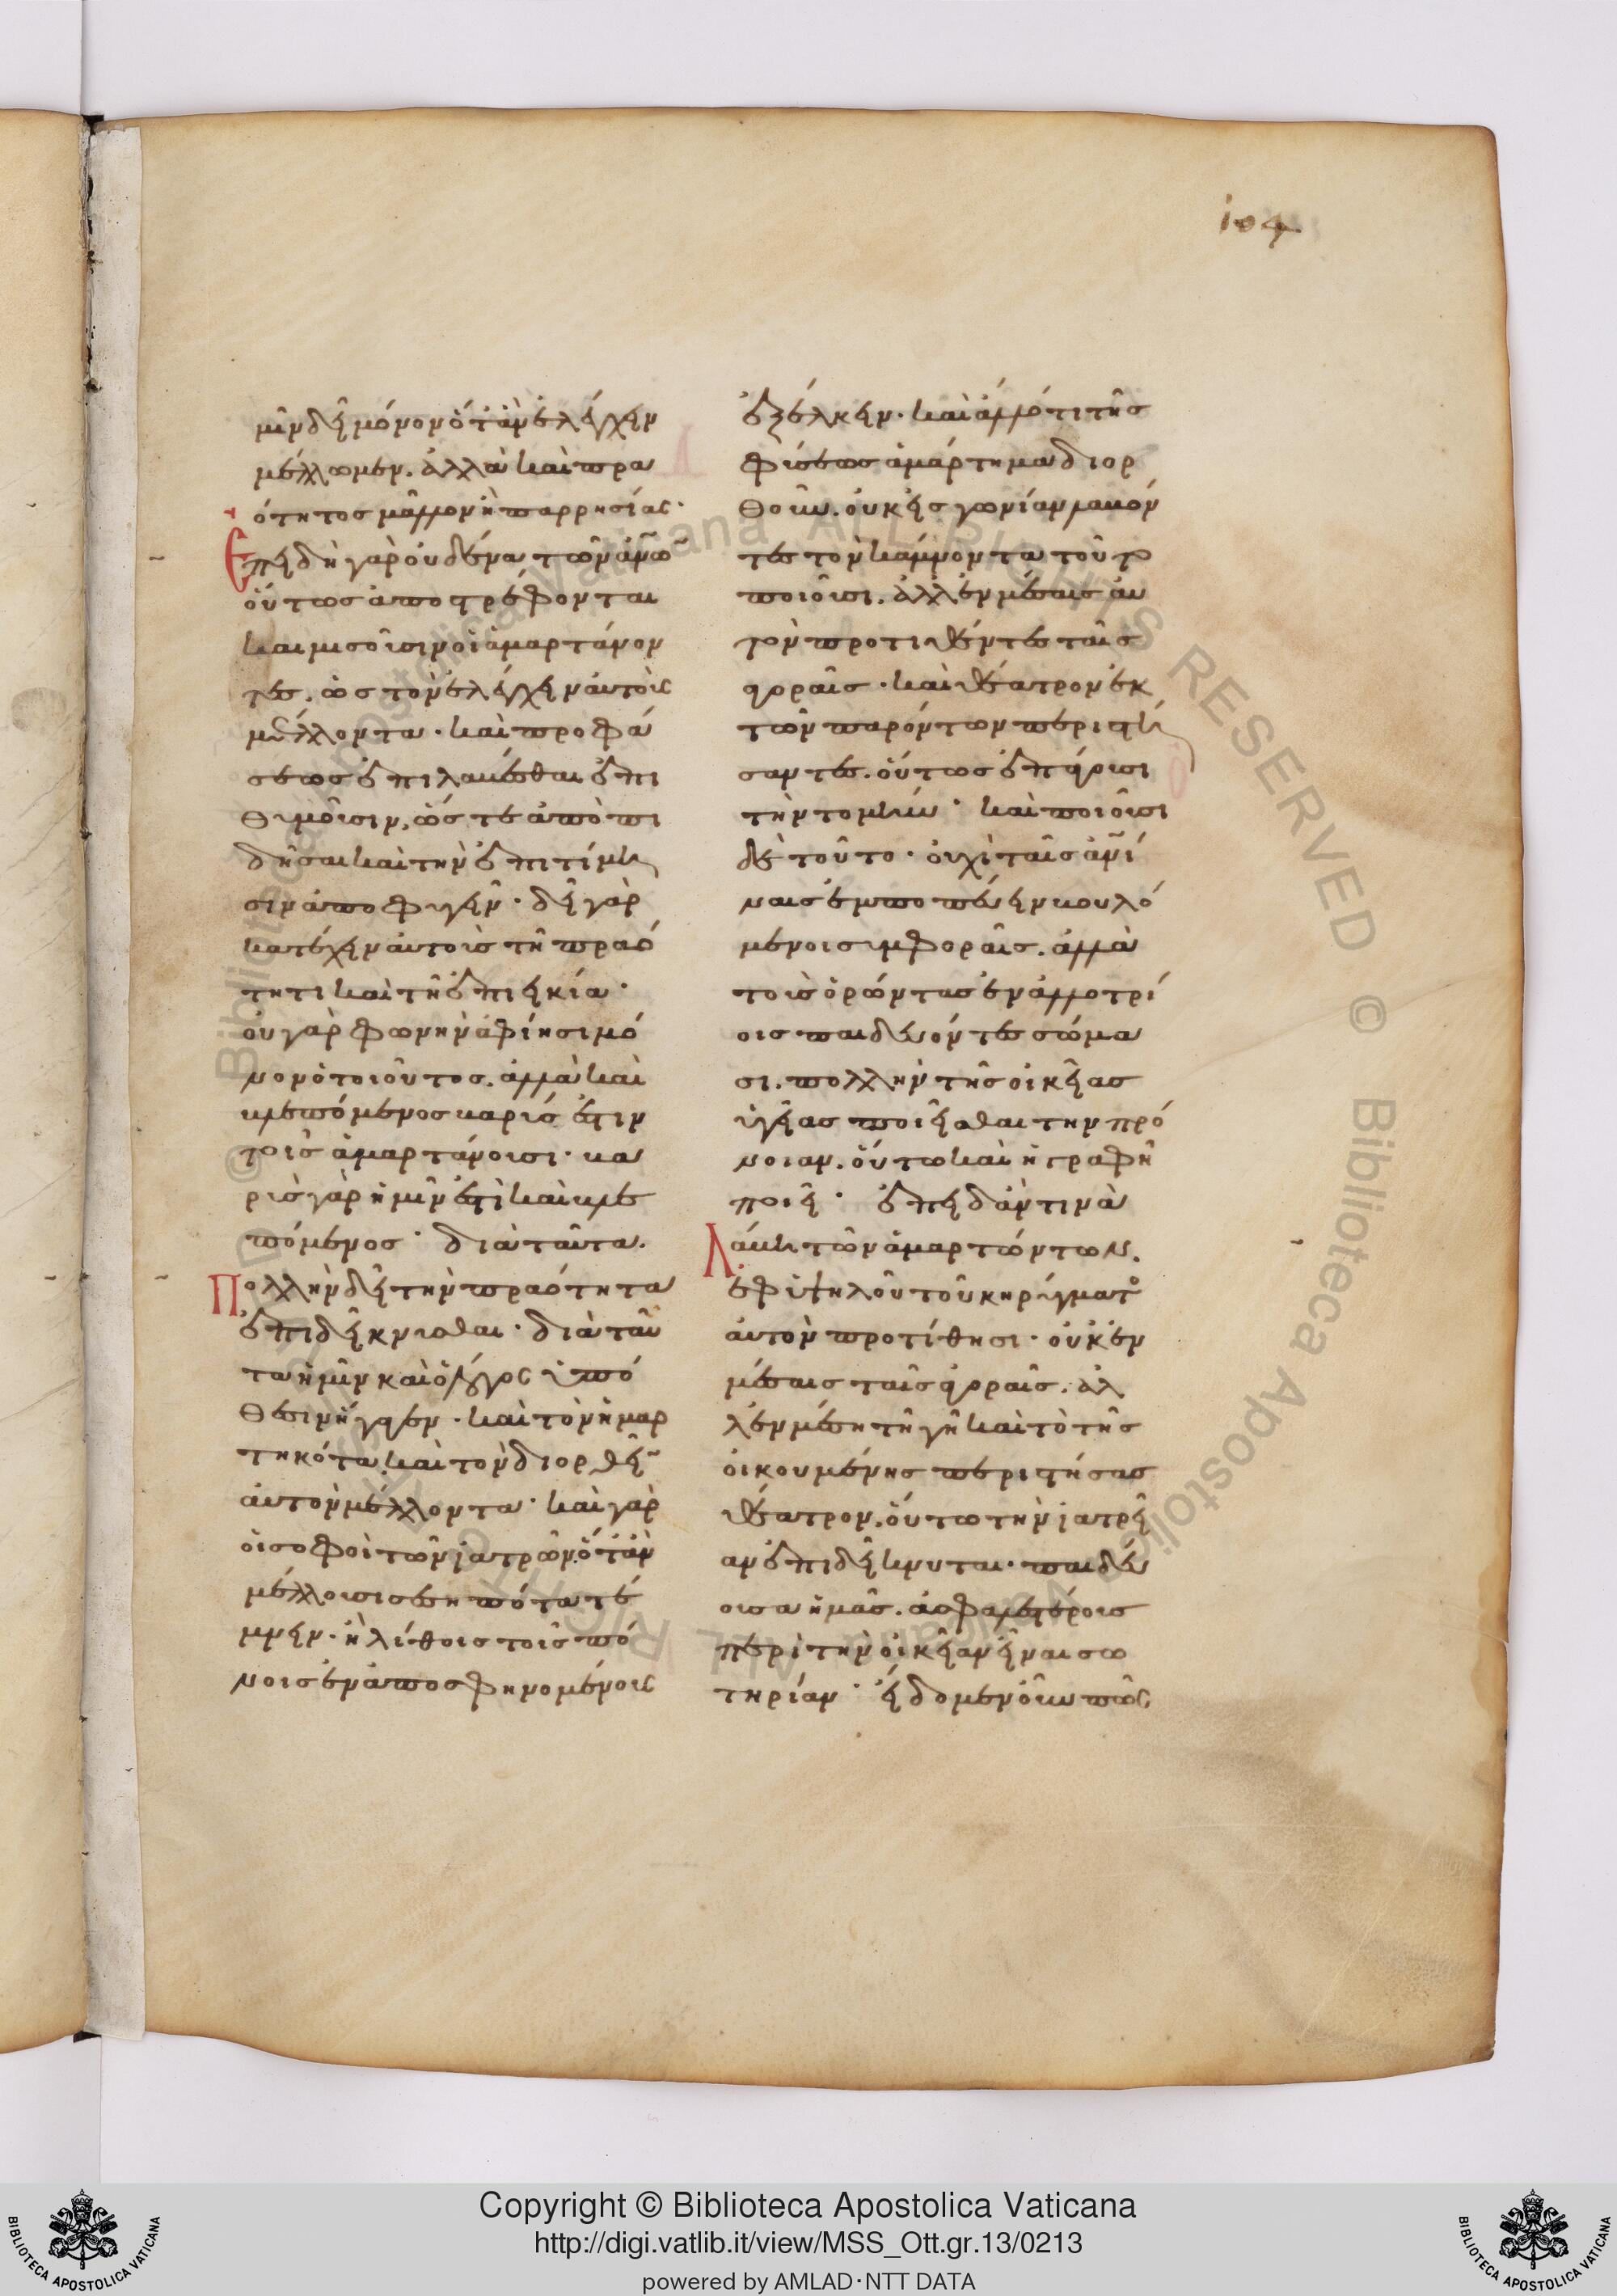 104
μῖν δεῖ μόνον ὅταν ἐλέγχειν
μέλλωμεν. ἀλλὰ καὶ πρα
ότητος μᾶλλον ἢ παρρησίας·
Ἐπειδὴ γὰρ οὐδένα τῶν ἀνῶν
οὕτως ἀποστρέφονται
καὶ μισοῦσιν οἱ ἁμαρτάνον
τες, ὡς τὸν ἐλέγχειν αὐτοὺς
μέλλοντα· καὶ προφά
σεως ἐπιλαβέσθαι ἐπι
θυμοῦσιν, ὥστε ἀποπι
δῆσαι καὶ τὴν ἐπιτίμη
σιν ἀποφυγεῖν· δεῖ γὰρ
κατέχειν αὐτοὺς τῆ πραό
τητι καὶ τῆ ἐπιεικία·
οὐ γὰρ φωνὴν ἀφίησι μό
νον ὁ τοιοῦτος. ἀλλὰ καὶ
βλεπόμενος βαρύς ἐστιν
τοῖς ἁμαρτάνουσι· βα
ρὺς γὰρ ἡμῖν ἐστὶ καὶ βλε
πόμενος· διὰ ταῦτα.
Πολλὴν δεῖ τὴν πραότητα
ἐπιδείκνυσθαι· διὰ ταῦ
τα ἡμῖν καὶ ὁ λόγος ὑπό
θεσιν ἤγαγεν· καὶ τὸν ἡμαρ
τηκότα. καὶ τὸν διορθεῖν
αὐτὸν μέλλοντα· καὶ γὰρ
οἱ σοφοὶ τῶν ἰατρῶν. ὅταν
μέλλουσι σεσηπότα τέ
μνειν· ἢ λίθους τοῖς πό
ροις ἐναποσφηνομένους
ἐξέλκειν· καὶ ἄλλό τι τῆς
φύσεως ἁμάρτημα διορ
θοῦν. οὐκ εἰς γωνίαν λαβόν
τες τὸν κάμνοντα τοῦτο
ποιοῦσι. ἀλλ' ἐν μέσαις αὐ
τὸν προτιθέντες ταῖς
ἀγοραῖς· καὶ θέατρον ἐκ
τῶν παρόντων περιστή
σαντες. οὕτως ἐπάγουσι
τὴν τομήν· καὶ ποιοῦσι
δὲ τοῦτο· οὐχὶ ταῖς ἀνί
ναις ἐμπομπεύειν βουλό
μενοι συμφοραῖς. ἀλλὰ
τοὺς ὁρῶντας ἐν ἀλλοτρί
οις παιδεύοντες σώμα
σι. πολλὴν τῆς οἰκείας
ὑγείας ποιεῖσθαι τὴν πρό
νοιαν. οὕτω καὶ ἡ γραφὴ
ποιεῖ· ἐπειδάν τινα
Λάβη τῶν ἁμαρτώντων.
ἐφ' ὑψηλοῦ τοῦ κηρύγματος
αὐτὸν προτίθησι· οὐκ ἐν
μέσαις ταῖς ἀγοραῖς. ἀλ
λ' ἐν μέση τῆ γῆ καὶ τὸ τῆς
οἰκουμένης περιστήσασ
θέατρον. οὕτω τὴν ἰατρεί
αν ἐπιδείκνυται· παιδεύ
ουσα ἡμᾶς. ἀσφαλεστέρους
περὶ τὴν οἰκείαν εἶναι σω
τηρίαν· εἴδομεν οὖν πῶς
Copyright © Biblioteca Apostolica Vaticana
http://digi.vatlib.it/view/MSS_Ott.gr.13/0213
powered by AMLAD·NTT DATA